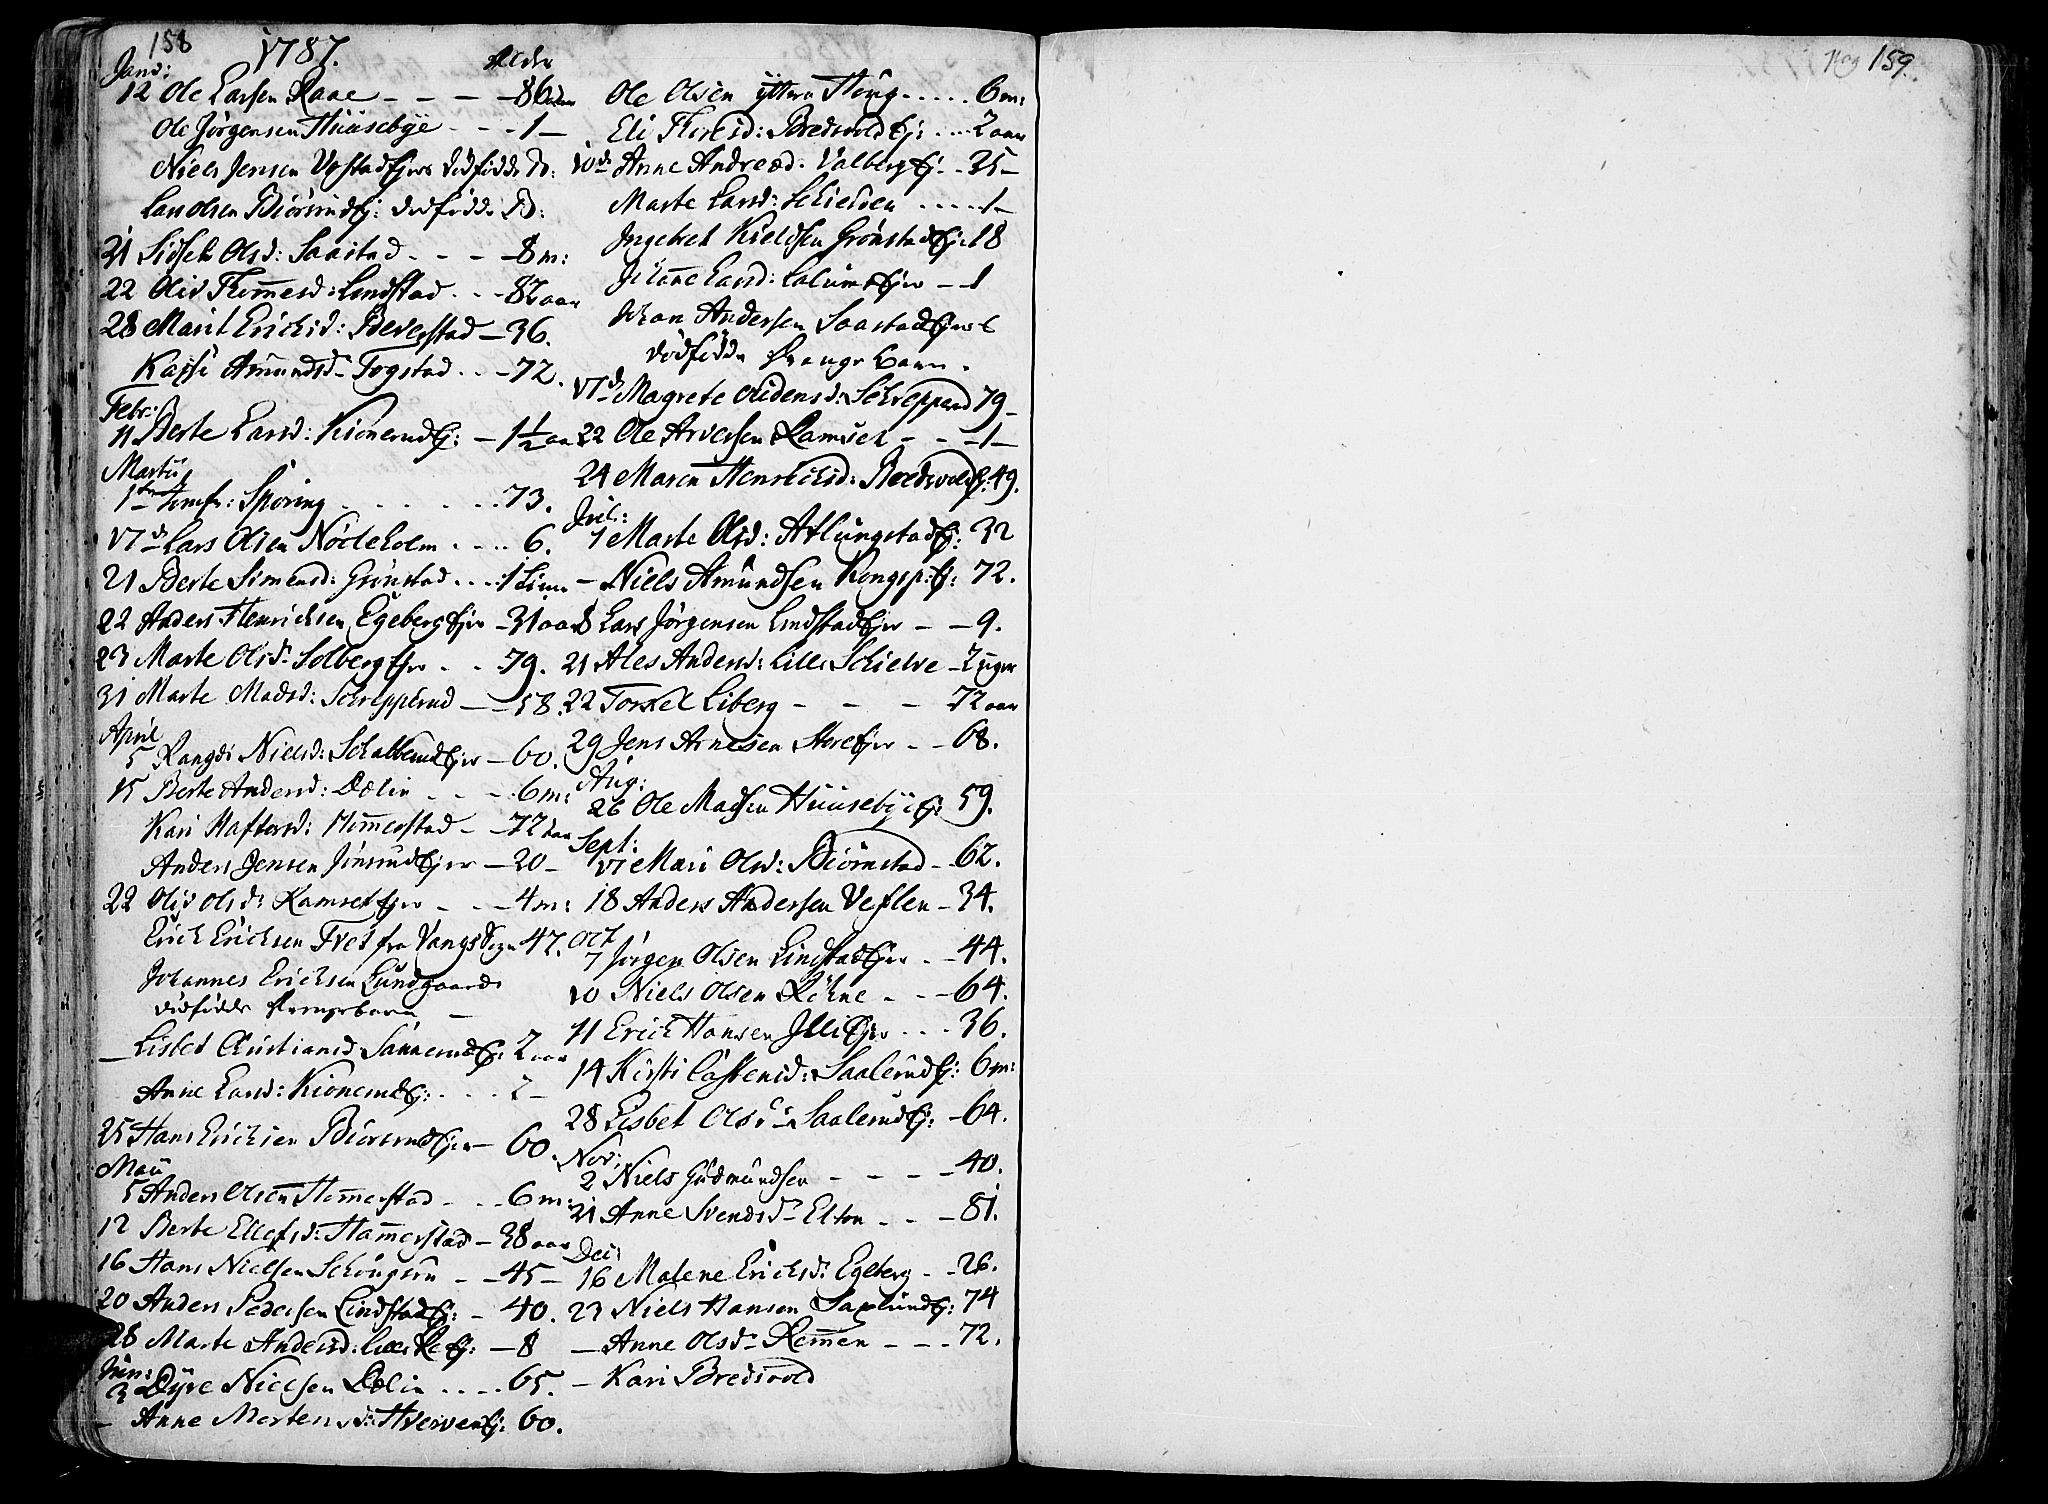 158
1787.
Alder
Janv:
12 Ole Larsen Raae - - - - 86
Ole Jørgensen Huusebye - - - 1 -
Niels Jensen dødfødde B:
Lars Olsen dødfødde B:
21 Sidsel Olsd: Saastad - - - - 8 m:
22 Oliv Lundstad - - - 87 aar
28 Marit Erichsd: Beverstad - 36.
Kari Amundsd Fogstad - - - 72.
Febr:
11 Berte Larsd: Kionerud Ej: - 1 1/2 aar
Martii
1 Sporing - - - - - 73.
17 Lars Olsen Nøcleholm - - - - 6.
21 Berte Simensd: Grønstad - - - - 1
22 Anders Henrichsen Egeberg Ejer - 31 aar
23 Marte Olsd Solberg Ejer - - - 79.
31 Marte Madsd: Schrepperud - 58.
April
5 Rangdi Nielsd: Ejer - 60.
15 Berte Andersd: Dølin - - - - 6 m:
Kari Haftorsd: Hommerstad - - 72 aar
Anders Jensen Ejer - 20 -
22 Oliv Olsd: Ramset Ejer - - - 4 m:
Erich Erichsen Tvet fra Vangs Sogn 47.
Johannes Erichsen Lundgaard
dødfødde Drengebarn -
- Lisbet Christiansd Sannerud Ej: 2 aar
Anne Larsd: Kionerud Ej: - - - 2 -
25 Hans Erichsen Ejer - 60.
Maii
5 Anders Olsen Hommerstad - - - 6 m:
12 Berte Ellefsd: Hammerstad - 38 aar
16 Hans Nielsen - - 45 -
20 Anders Pedersen Lindstad Ej: - 40.
28 Marte Andersd: Ej: - 8
Jun:
3 Dyre Nielsen Dølin - - - - 65.
- Anne Mortensd: Ej: 60.
Ole Olsen yttre Houg - - - - - 6 m:
Eli Bredvold Ej: - - - - 2 aar
10 Anne Andread. Valberg Ej - - 35 -
Marte Larsd: Schielden - - - - - 1 -
Ingebret Kieldsen Grønstad Ej: 18
Larsd: Ejer - - 1
Johan Andersen Saastad Ejer
dødfødde Drenge Barn.
17 Magrete Audensd: Schrepperud 79 -
22 Ole Arvesen Ramset - - - 1 -
24 Maren Henrichsd: Bredvold Ej: 49.
Jul:
1 Marte Olsd: Atlungstad Ej: 32
- Niels Amundsen Kongsp: Ej: 72.
8 Lars Jørgensen Lindstad Ejer - - 9.
21 Ales Andersd: Lille Schielve - 2 uger
22 Torkel Liberg - - - 72 aar
29 Jens Arnesen Ejer - - 68.
Aug:
26 Ole Madsen Huusebye Ej: 59.
Sept:
17 Mari Olsd: Biørnstad - - 62.
18 Anders Andersen Veflen - 34.
Oct
7 Jørgen Olsen Lindstad Ejer - - 44.
10 Niels Olsen Røhne - - - 64.
11 Erich Hansen Ejer - - - 36.
14 Kirsti Castensd: Saalerud Ej: 6 m:
28 Lisbet Olsd Saalerud Ej: - 64.
Nov:
2 Niels Gudmundsen - - - - 40.
21 Anne Svendsd Elton - - - 81.
Dec:
16 Malene Erichsd: Egeberg - - 26.
23 Niels Hansen Saxlund Ej: 74
- Anne Olsd Remmen - - - - 72.
- Kari Bredvold
159.